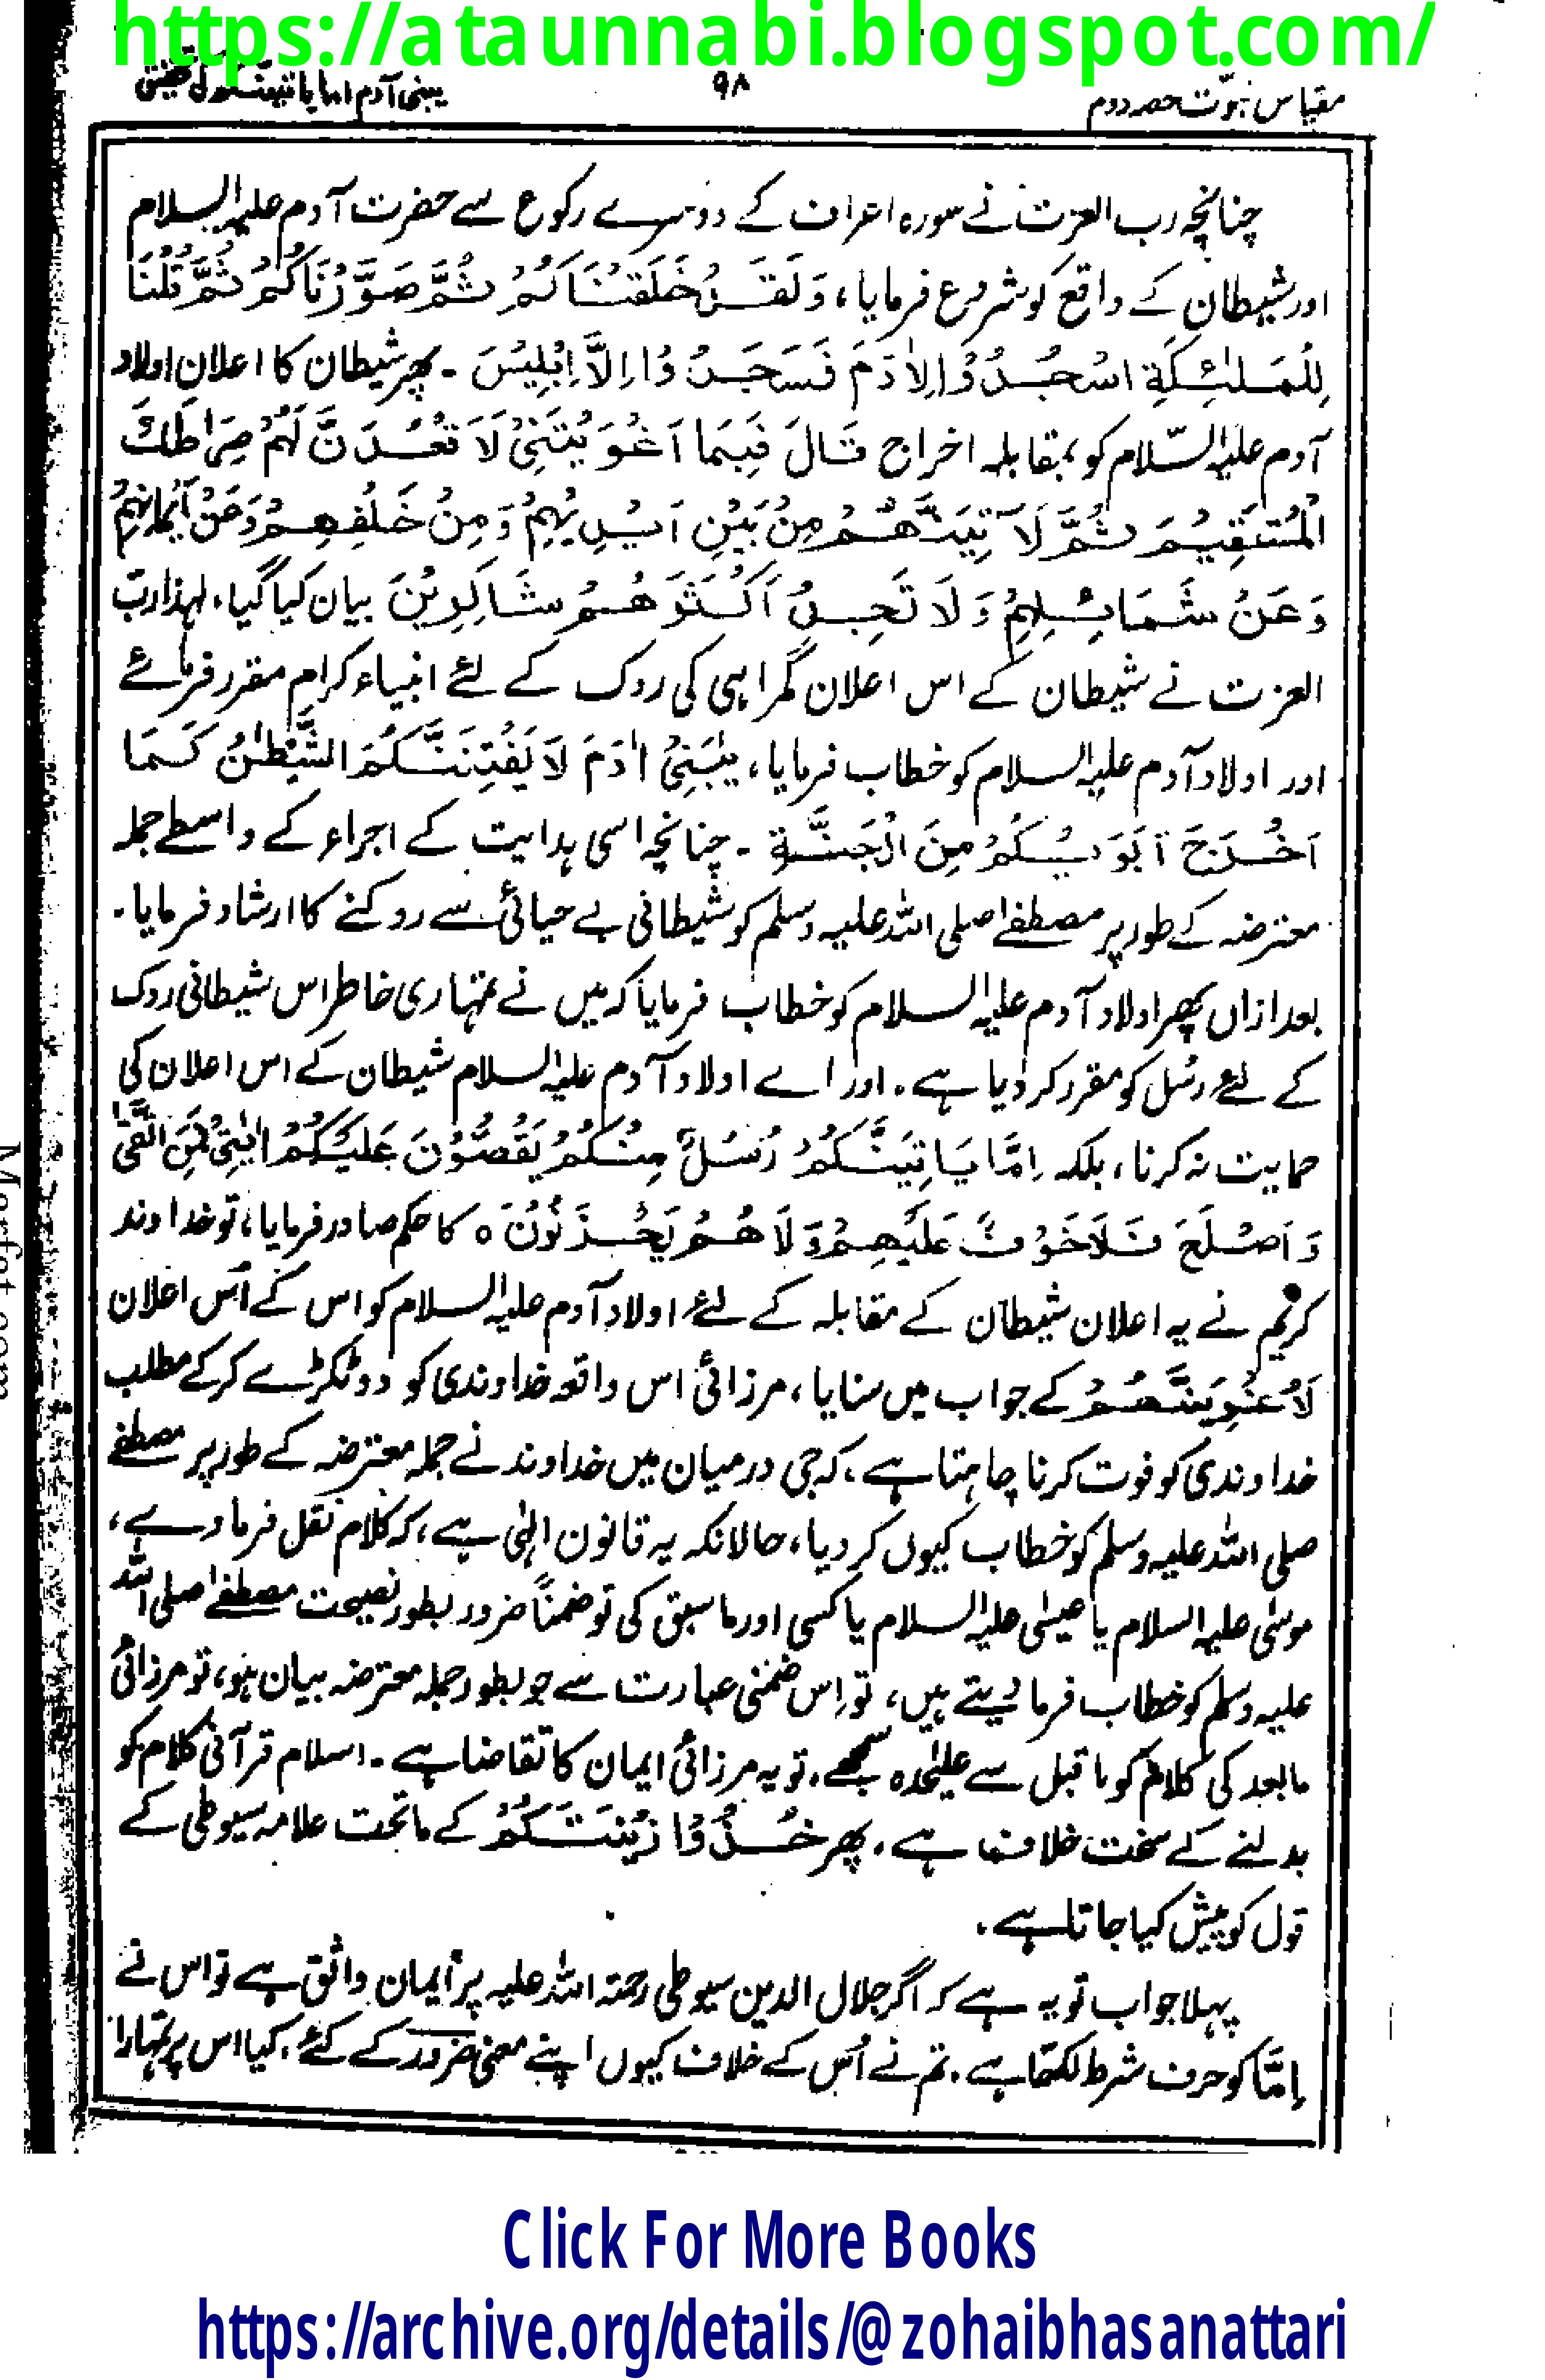 https://ataunnabi.blogspot.com/
مقیاس نبوّت حصہ دوم
۹۸
یبنی آدم اما یاتینکم کی تحقیق
چنانچہ رب العزت نے سورہ اعراف کے دوسرے رکوع سے حضرت آدم علیہ السلام
اور شیطان کے واقع کو شروع فرمایا، وَلَقَدْ خَلَقْنَاكُمْ ثُمَّ صَوَّرْنَاكُمْ ثُمَّ قُلْنَا
لِلْمَلٰئِكَةِ اسْجُدُوْا لِاٰدَمَ فَسَجَدُوْا اِلَّا اِبْلِيْسَ ۔ پھر شیطان کا اعلانِ اولاد
آدم علیہ السّلام کو بمقابلہ اخراج قَالَ فَبِمَا اَغْوَيْتَنِيْ لَاَقْعُدَنَّ لَهُمْ صِرَاطَكَ
الْمُسْتَقِيْمَ ثُمَّ لَاٰتِيَنَّهُمْ مِنْ بَيْنِ اَيْدِيْهِمْ وَمِنْ خَلْفِهِمْ وَعَنْ اَيْمَانِهِمْ
وَعَنْ شَمَائِلِهِمْ وَلَا تَجِدُ اَكْثَرَهُمْ شَاكِرِيْنَ بیان کیا گیا، لہذا ربّ
العزت نے شیطان کے اس اعلان گمراہی کی روک کے لئے انبیاء کرام مقرر فرمائے
اور اولاد آدم علیہ السلام کو خطاب فرمایا، يٰبَنِيْ اٰدَمَ لَا يَفْتِنَنَّكُمُ الشَّيْطٰنُ كَمَا
اَخْرَجَ اَبَوَيْكُمْ مِنَ الْجَنَّةِ ۔ چنانچہ اسی ہدایت کے اجراء کے واسطے جملہ
معترضہ کے طور پر مصطفےٰ صلی اللہ علیہ وسلم کو شیطانی بے حیائی سے روکنے کا ارشاد فرمایا۔
بعد ازاں پھر اولاد آدم علیہ السلام کو خطاب فرمایا کہ میں نے تمہاری خاطر اس شیطانی روک
کے لئے رسل کو مقرر کر دیا ہے۔ اور اے اولاد آدم علیہ السلام شیطان کے اس اعلان کی
حمایت نہ کرنا، بلکہ اِمَّا يَاْتِيَنَّكُمْ رُسُلٌ مِنْكُمْ يَقُصُّوْنَ عَلَيْكُمْ اٰيٰتِيْ فَمَنِ اتَّقٰى
وَاَصْلَحَ فَلَا خَوْفٌ عَلَيْهِمْ وَلَا هُمْ يَحْزَنُوْنَ ہ کا حکم صادر فرمایا، تو خداوند
کریم نے یہ اعلان شیطان کے مقابلہ کے لئے اولاد آدم علیہ السلام کو اس کے اُس اعلان
لَاُغْوِيَنَّهُمْ کے جواب میں سنایا، مرزائی اس واقعہ خداوندی کو دو ٹکڑے کر کے مطلب
خداوندی کو فوت کرنا چاہتا ہے، کہ جی درمیان میں خداوند نے جملہ معترضہ کے طور پر مصطفےٰ
صلی اللہ علیہ وسلم کو خطاب کیوں کر دیا، حالانکہ یہ قانون الٰہی ہے، کہ کلام نقل فرما دے،
موسٰی علیہ السلام یا عیسٰی علیہ السلام یا کسی اور ما سبق کی تو ضمناً ضرور بطور نصیحت مصطفےٰ صلی اللہ
علیہ وسلم کو خطاب فرما لیتے ہیں، تو اِس ضمنی عبارت سے جو بطور جملہ معترضہ بیان ہو، تو مرزائی
مابعد کی کلام کو ما قبل سے علیٰحدہ سمجھے۔ تو یہ مرزائی ایمان کا تقاضا ہے۔ اسلام قرآنی کلام کو
بدلنے کے سخت خلاف ہے۔ پھر خُذُوْا زِيْنَتَكُمْ کے ماتحت علامہ سیوطی کے
قول کو پیش کیا جاتا ہے۔
پہلا جواب تو یہ ہے کہ اگر جلال الدین سیوطی رحمتہ اللہ علیہ پر ایمان واثق ہے تو اس نے
اِمَّا کو حرف شرط لکھا ہے۔ تم نے اُس کے خلاف کیوں اپنے معنٰی ضرور کے کئے۔ کیا اس پر تمہارا
Marfat.com
Click For More Books
https://archive.org/details/@zohaibhasanattari